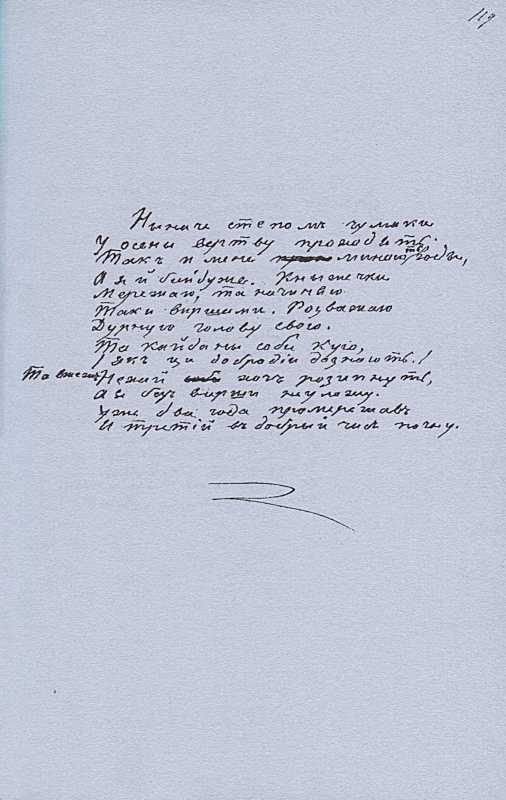 119
Ныначе степомъ чумаки
У осены верству проходять.
Такъ и мене минають годы,
А я й байдуже. Кныжечки
Мережаю, та начиняю
Таки виршами. Розважаю
Дурную голову свою.
Та кайданы соби кую,
Якъ ци добродіи дознають!
Та вже Нехай хочъ розипнуть,
А я безъ вирши неулежу.
Уже два года промережавъ
И третій въ добрый часъ почну.